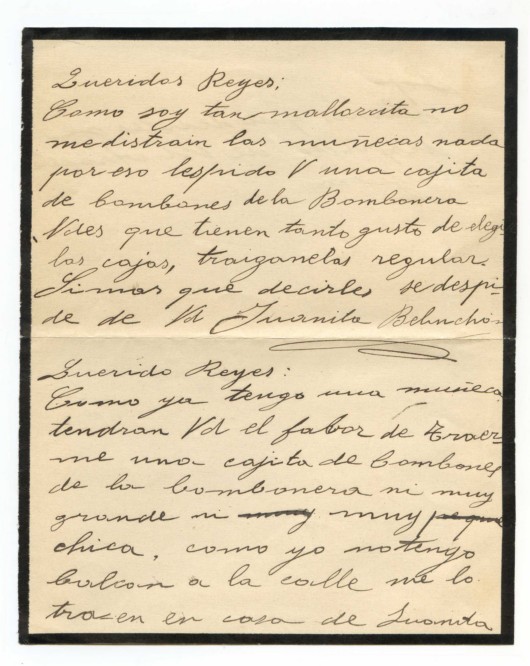 Queridos Reyes;
Como soy tan mallorcita no
me distrain las muñecas nada
por eso les pido V una cajita
de bombones de la Bombonera
Vdes que tienen tanto gusto de elegi
las cajas, traiganelas regular.
Sinmas que decirles se despi-
de de Vd Juanita Belinchón
Querido Reyes:
Como ya tengo una muñeca
tendran Vd el fabor de traer-
me una cajita de bombones
de la bombonera ni muy
grande ni muy muy peque
chica, como yo notengo
balcon a la calle me lo
traen en casa de Juanita